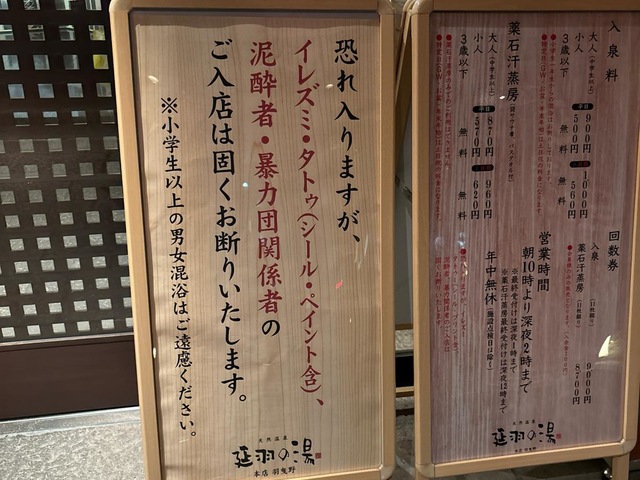 恐れ入りますが、
イレズミ・タトゥ(シール・ペイント含)、
泥酔者・暴力団関係者の
ご入店は固くお断りいたします。
※小学生以上の男女混浴はご遠慮ください。
天然温泉
延羽の湯
本店 羽曳野
入泉料
大人(中学生以上) 平日 900円 1000円
小人 500円 560円
3歳以下 無料 無料
薬石汗蒸房
大人(中学生以上) 平日 870円 960円
小人 570円 620円
3歳以下 無料 無料
回数券
入泉 9000円
薬石汗蒸房 8700円
営業時間
朝10時より深夜2時まで
※最終受付は深夜1時まで
※薬石汗蒸房最終受付は深夜12時まで
年中無休(施設点検日は除く)
天然温泉
延羽の湯
本店 羽曳野